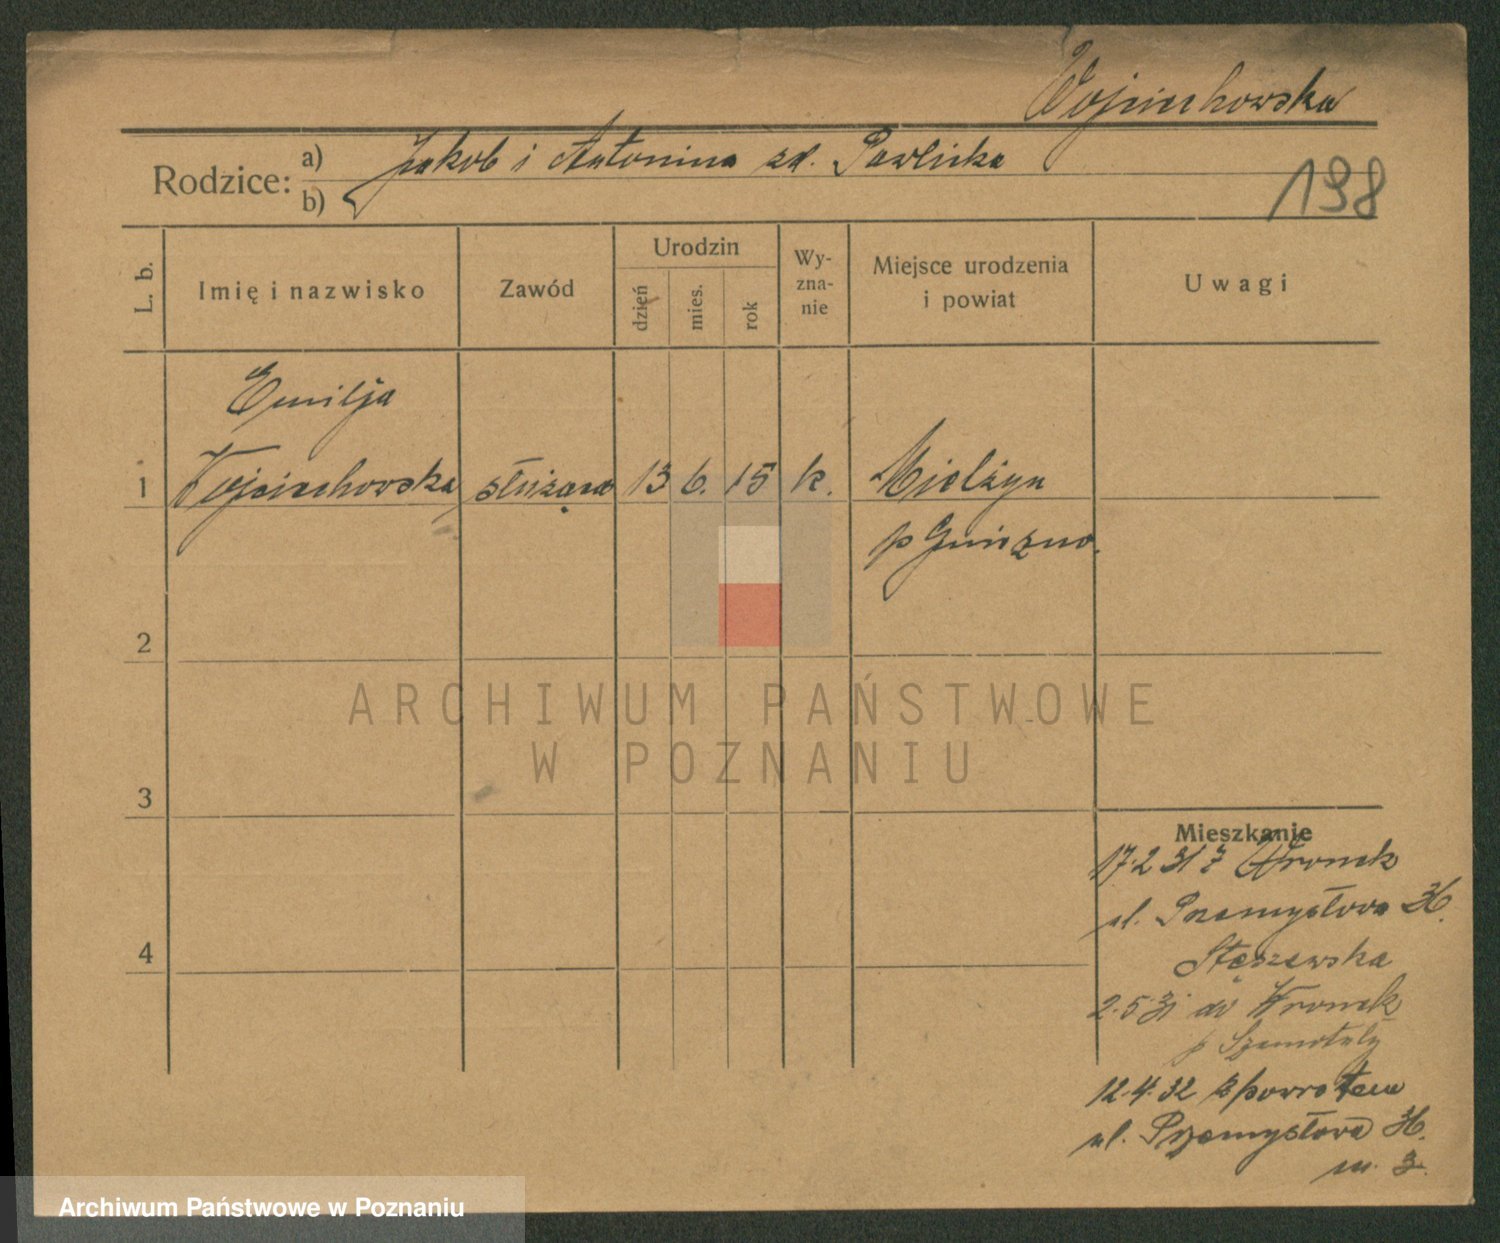 Wojciechowska
Rodzice: a) Jakob i Antonina zd. Pawlicka
b)
198
L. b.
Imię i nazwisko
Zawód
Urodzin
dzień
mies.
rok
Wy-
zna-
nie
Miejsce urodzenia
i powiat
Uwagi
Emilja
1 Wojciechowska służąca 13 6. 15 k. Mielżyn
p Gniezno.
2
3
4
ARCHIWUM PAŃSTWOWE
W POZNANIU
Mieszkanie
17.2 31 z Wronek
ul. Przemysłowa 36.
Stęszewska
2.5.31 do Wronek
p Szamotuły
12.4.32 z powrotem
ul. Przemysłowa 36.
m. 3.
Archiwum Państwowe w Poznaniu